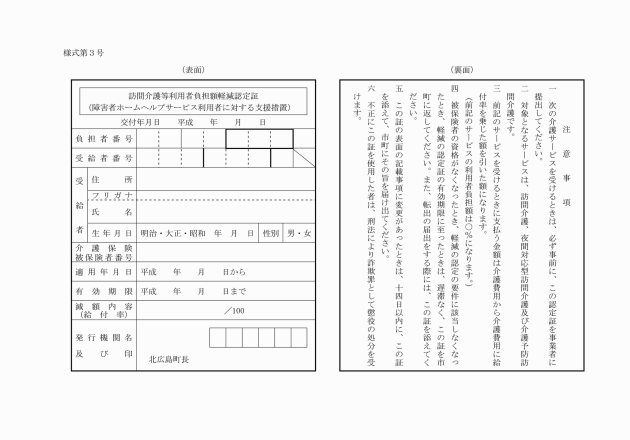 様式第３号
（表面）
訪問介護等利用者負担額軽減認定証
（障害者ホームヘルプサービス利用者に対する支援措置）
交付年月日　平成　　年　　月　　日
負担者番号
受給者番号
受給者
住所
フリガナ
氏名
生年月日　明治・大正・昭和　年　月　日　性別　男・女
介護保険
被保険者番号
適用年月日　平成　　年　　月　　日から
有効期限　平成　　年　　月　　日まで
減額内容
（給付率）
／100
発行機関名
及び印
北広島町長
（裏面）
注意事項
一　次の介護サービスを受けるときは、必ず事前に、この認定証を事業者に
提出してください。
二　対象となるサービスは、訪問介護、夜間対応型訪問介護及び介護予防訪
問介護です。
三　前記のサービスを受けるときに支払う金額は介護費用から介護費用に給
付率を乗じた額を引いた額になります。
（前記のサービスの利用者負担額は○％になります。）
四　被保険者の資格がなくなったとき、軽減の認定の要件に該当しなくなっ
たとき、軽減の認定証の有効期限に至ったときは、遅滞なく、この証を市
町に返してください。また、転出の届出をする際には、この証を添えてく
ださい。
五　この証の表面の記載事項に変更があったときは、十四日以内に、この証
を添えて、市町にその旨を届け出てください。
六　不正にこの証を使用した者は、刑法により詐欺罪として懲役の処分を受
けます。